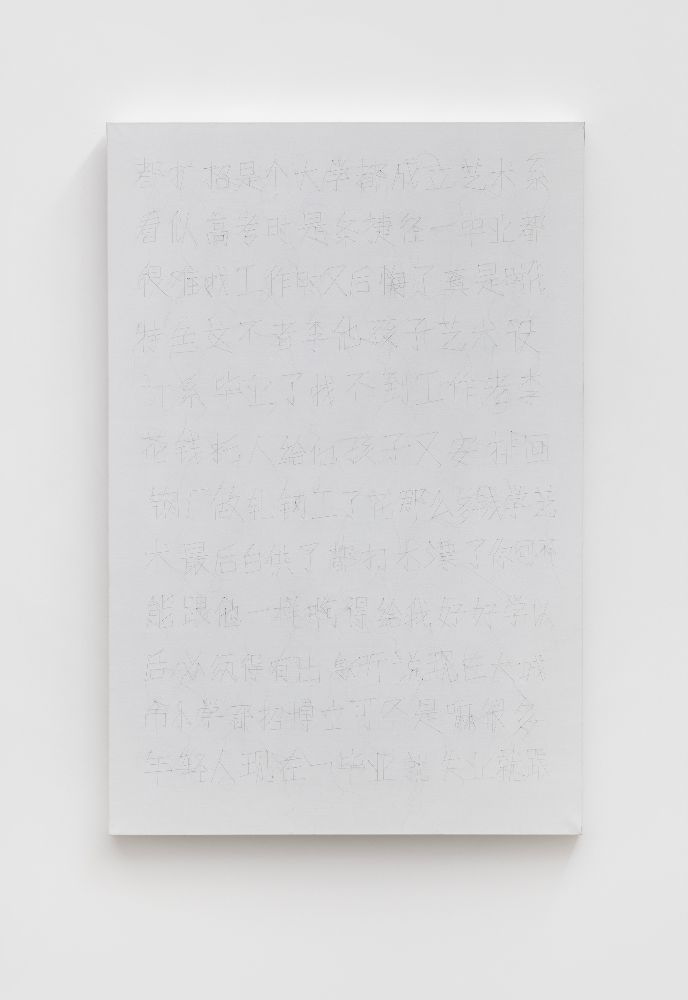 都扩招是个大学都成立艺术系
看似高考时是条捷径一毕业都
很难找工作时又后悔了真是时代
特色文不老李他孩子艺术设
计系毕业了找不到工作老李
花钱托人给他孩子又安排回
钢厂做轧钢工了花那么多钱学艺
术最后白供了都打水漂了你可不
能跟他一样啊得给我好好学以
后必须得有出息听说现在大城
市小学都招博士可不是嘛很多
年轻人现在一毕业就失业就跟